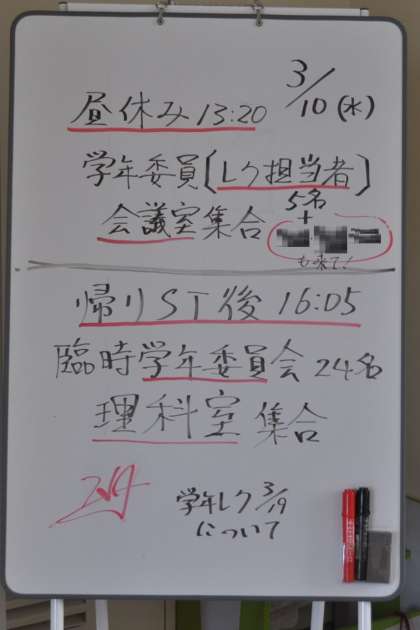 3/10(水)
昼休み 13:20
学年委員〔レク担当者〕
5名
会議室集合 +
も来て!
帰りST後 16:05
臨時学年委員会 24名
理科室 集合
学年レク 3/19
について